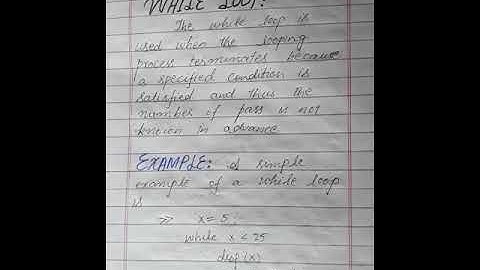 WHILE LOOP:
The while loop is
used when the looping
process terminates because
a specified condition is
satisfied and thus the
number of pass is not
known in advance
EXAMPLE: A simple
example of a while loop
is
>> x = 5;
while x < 25
disp(x)